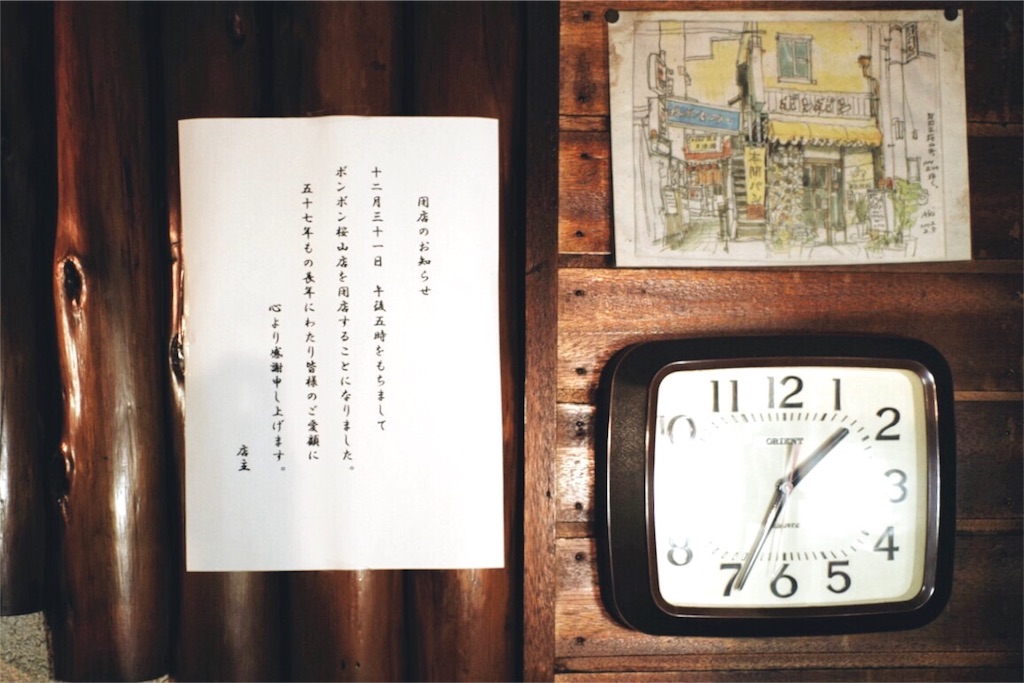 閉店のお知らせ
十二月三十一日　午後五時をもちまして
ボンボン桜山店を閉店することになりました。
五十七年もの長年にわたり皆様のご愛顧に
心より感謝申し上げます。
店主
本間パン
11 12 1
10 2
3
8 4
7 6 5
ORIENT
Quartz